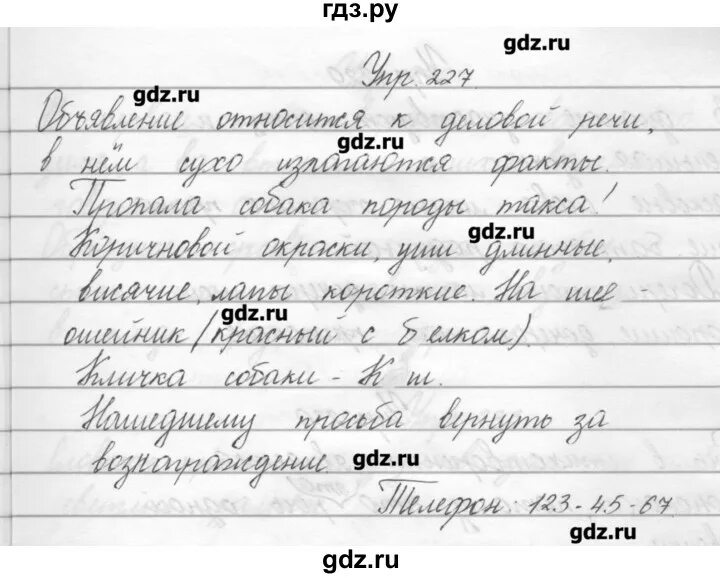 гдз.ру
gdz.ru
Упр. 227.
gdz.ru
Объявление относится к деловой речи,
gdz.ru
в нём сухо излагаются факты.
Пропала собака породы такса!
gdz.ru
Коричновой окраски, уши длинные,
висячие, лапы короткие. На шее -
gdz.ru
ошейник (красный с белком).
Кличка собаки - К ш.
Нашедшему просьба вернуть за
вознаграждение
gdz.ru
Телефон: 123-45-67
gdz.ru
gdz.ru